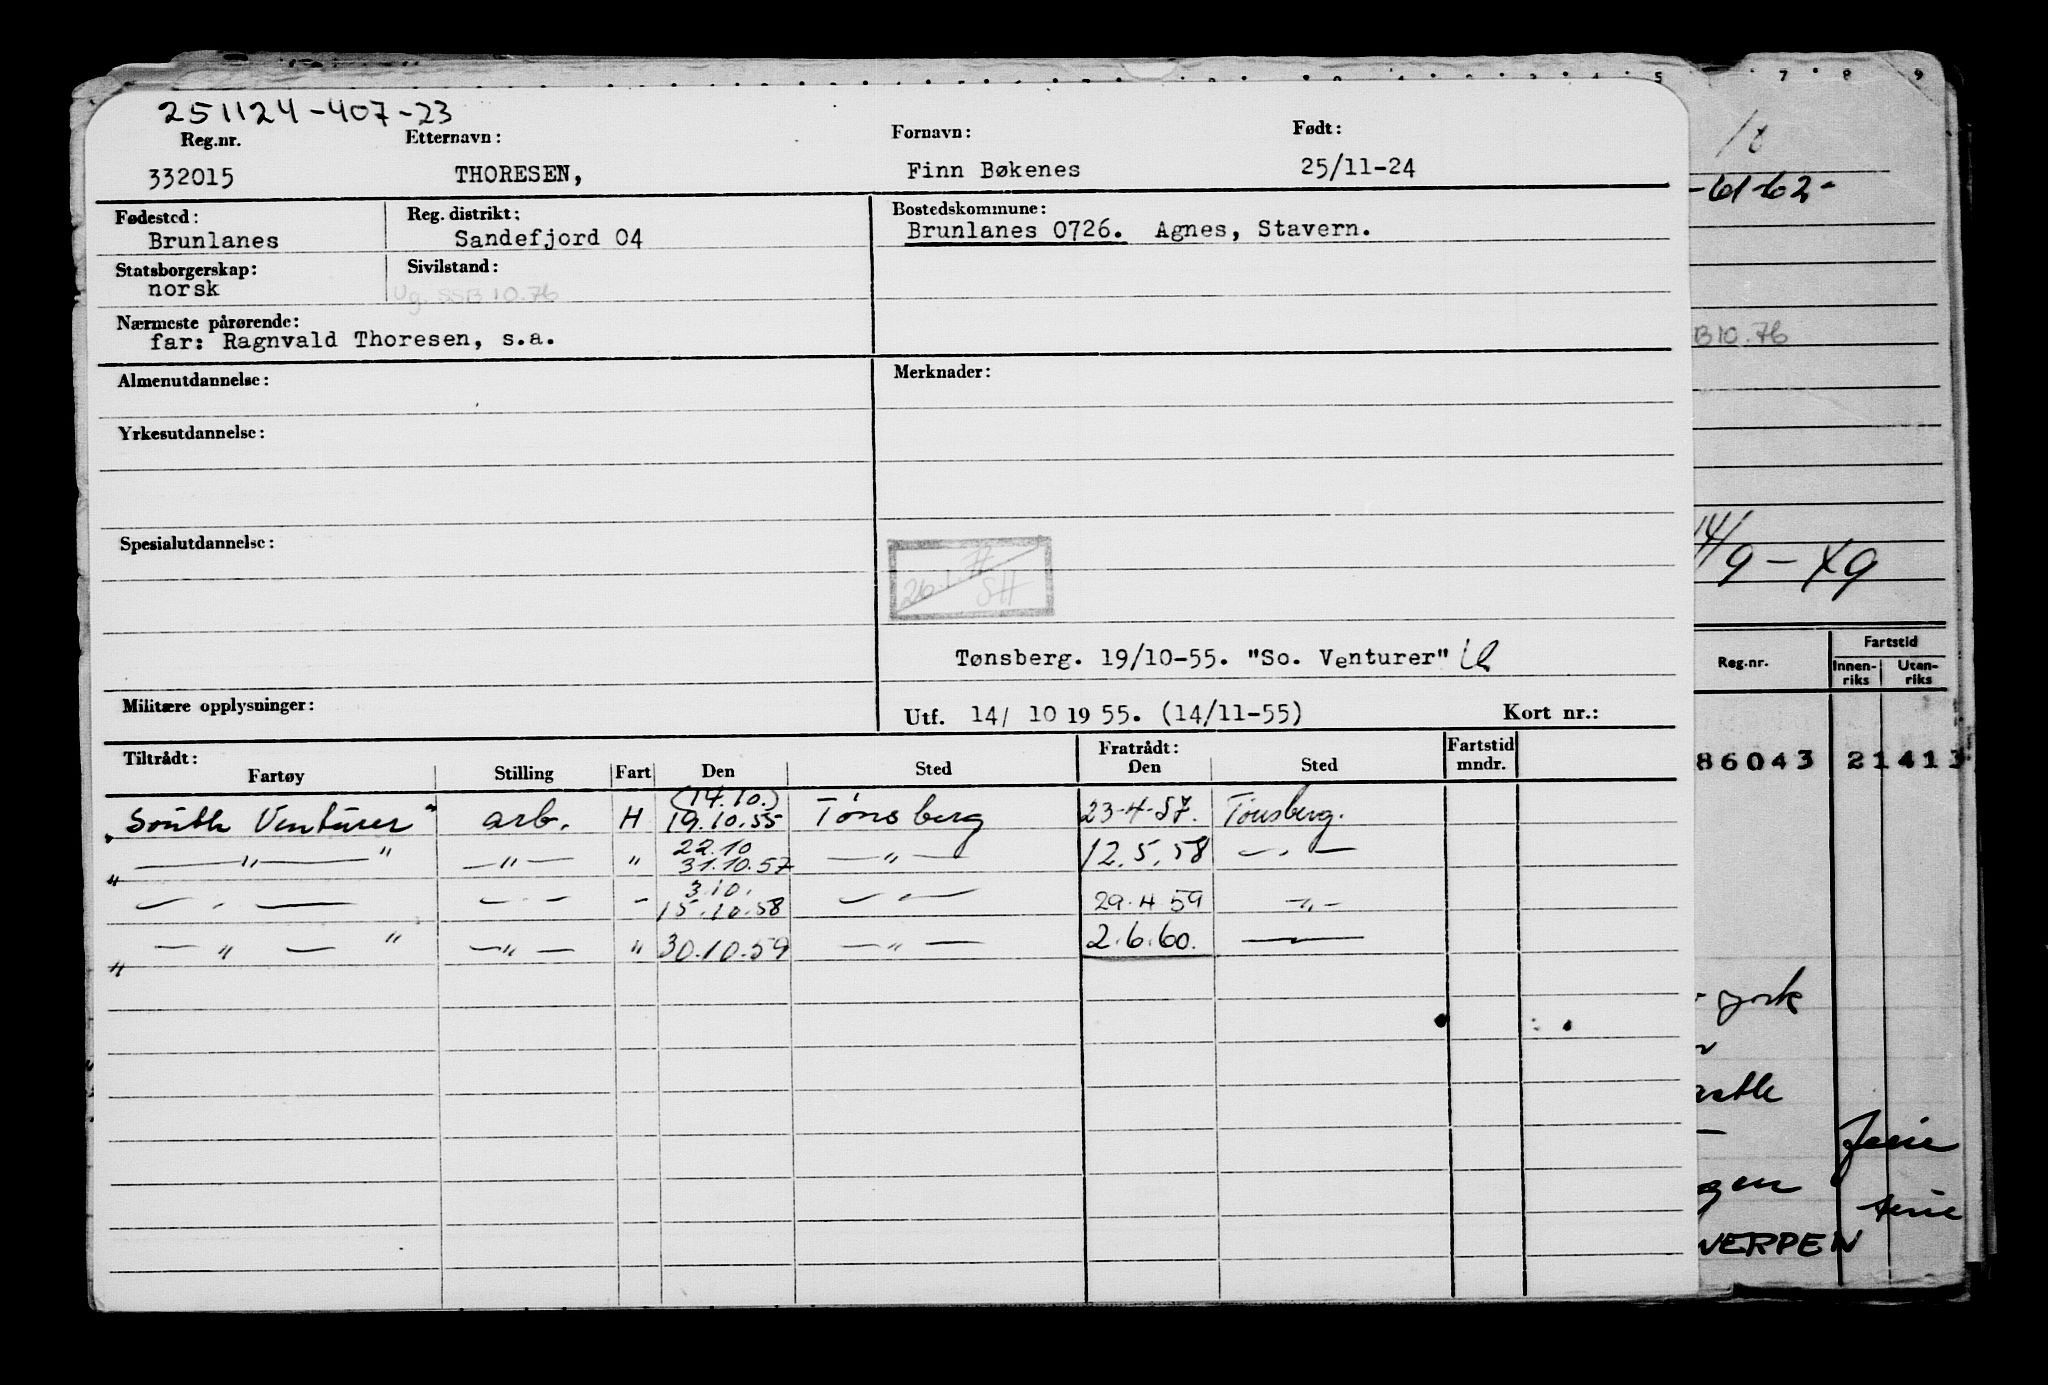 251124-407-23
Reg.nr. Etternavn: Fornavn: Født:
332015 THORESEN, Finn Bøkenes 25/11-24
Fødested: Reg. distrikt: Bostedskommune:
Brunlanes Sandefjord 04 Brunlanes 0726. Agnes, Stavern.
Statsborgerskap: Sivilstand:
norsk Ug. SSB 10.76
Nærmeste pårørende:
far: Ragnvald Thoresen, s.a.
Almenutdannelse: Merknader:
Yrkesutdannelse:
Spesialutdannelse:
SH
Tønsberg. 19/10-55. "So. Venturer"
Militære opplysninger: Utf. 14/ 10 19 55. (14/11-55) Kort nr.:
Tiltrådt: Fratrådt: Fartstid
Fartøy Stilling Fart Den Sted Den Sted mndr.
(14.10.)
"South Venturer" arb. H 19.10.55 Tønsberg 23-4-57. Tønsberg.
22.10
— " — " — " — " 31.10.57 — " — 12.5.58 — " —
3.10.
— " — — " — - 15.10.58 — " — 29.4 59 — " —
" — " — " — " — " 30.10.59 — " — 2.6.60. —
5 7 8 9
-61-62-
B10.76
14/9-49
Fartstid
Reg.nr. Innen-riks Uten-riks
86043 21413
york
astle
gen
WERPEN